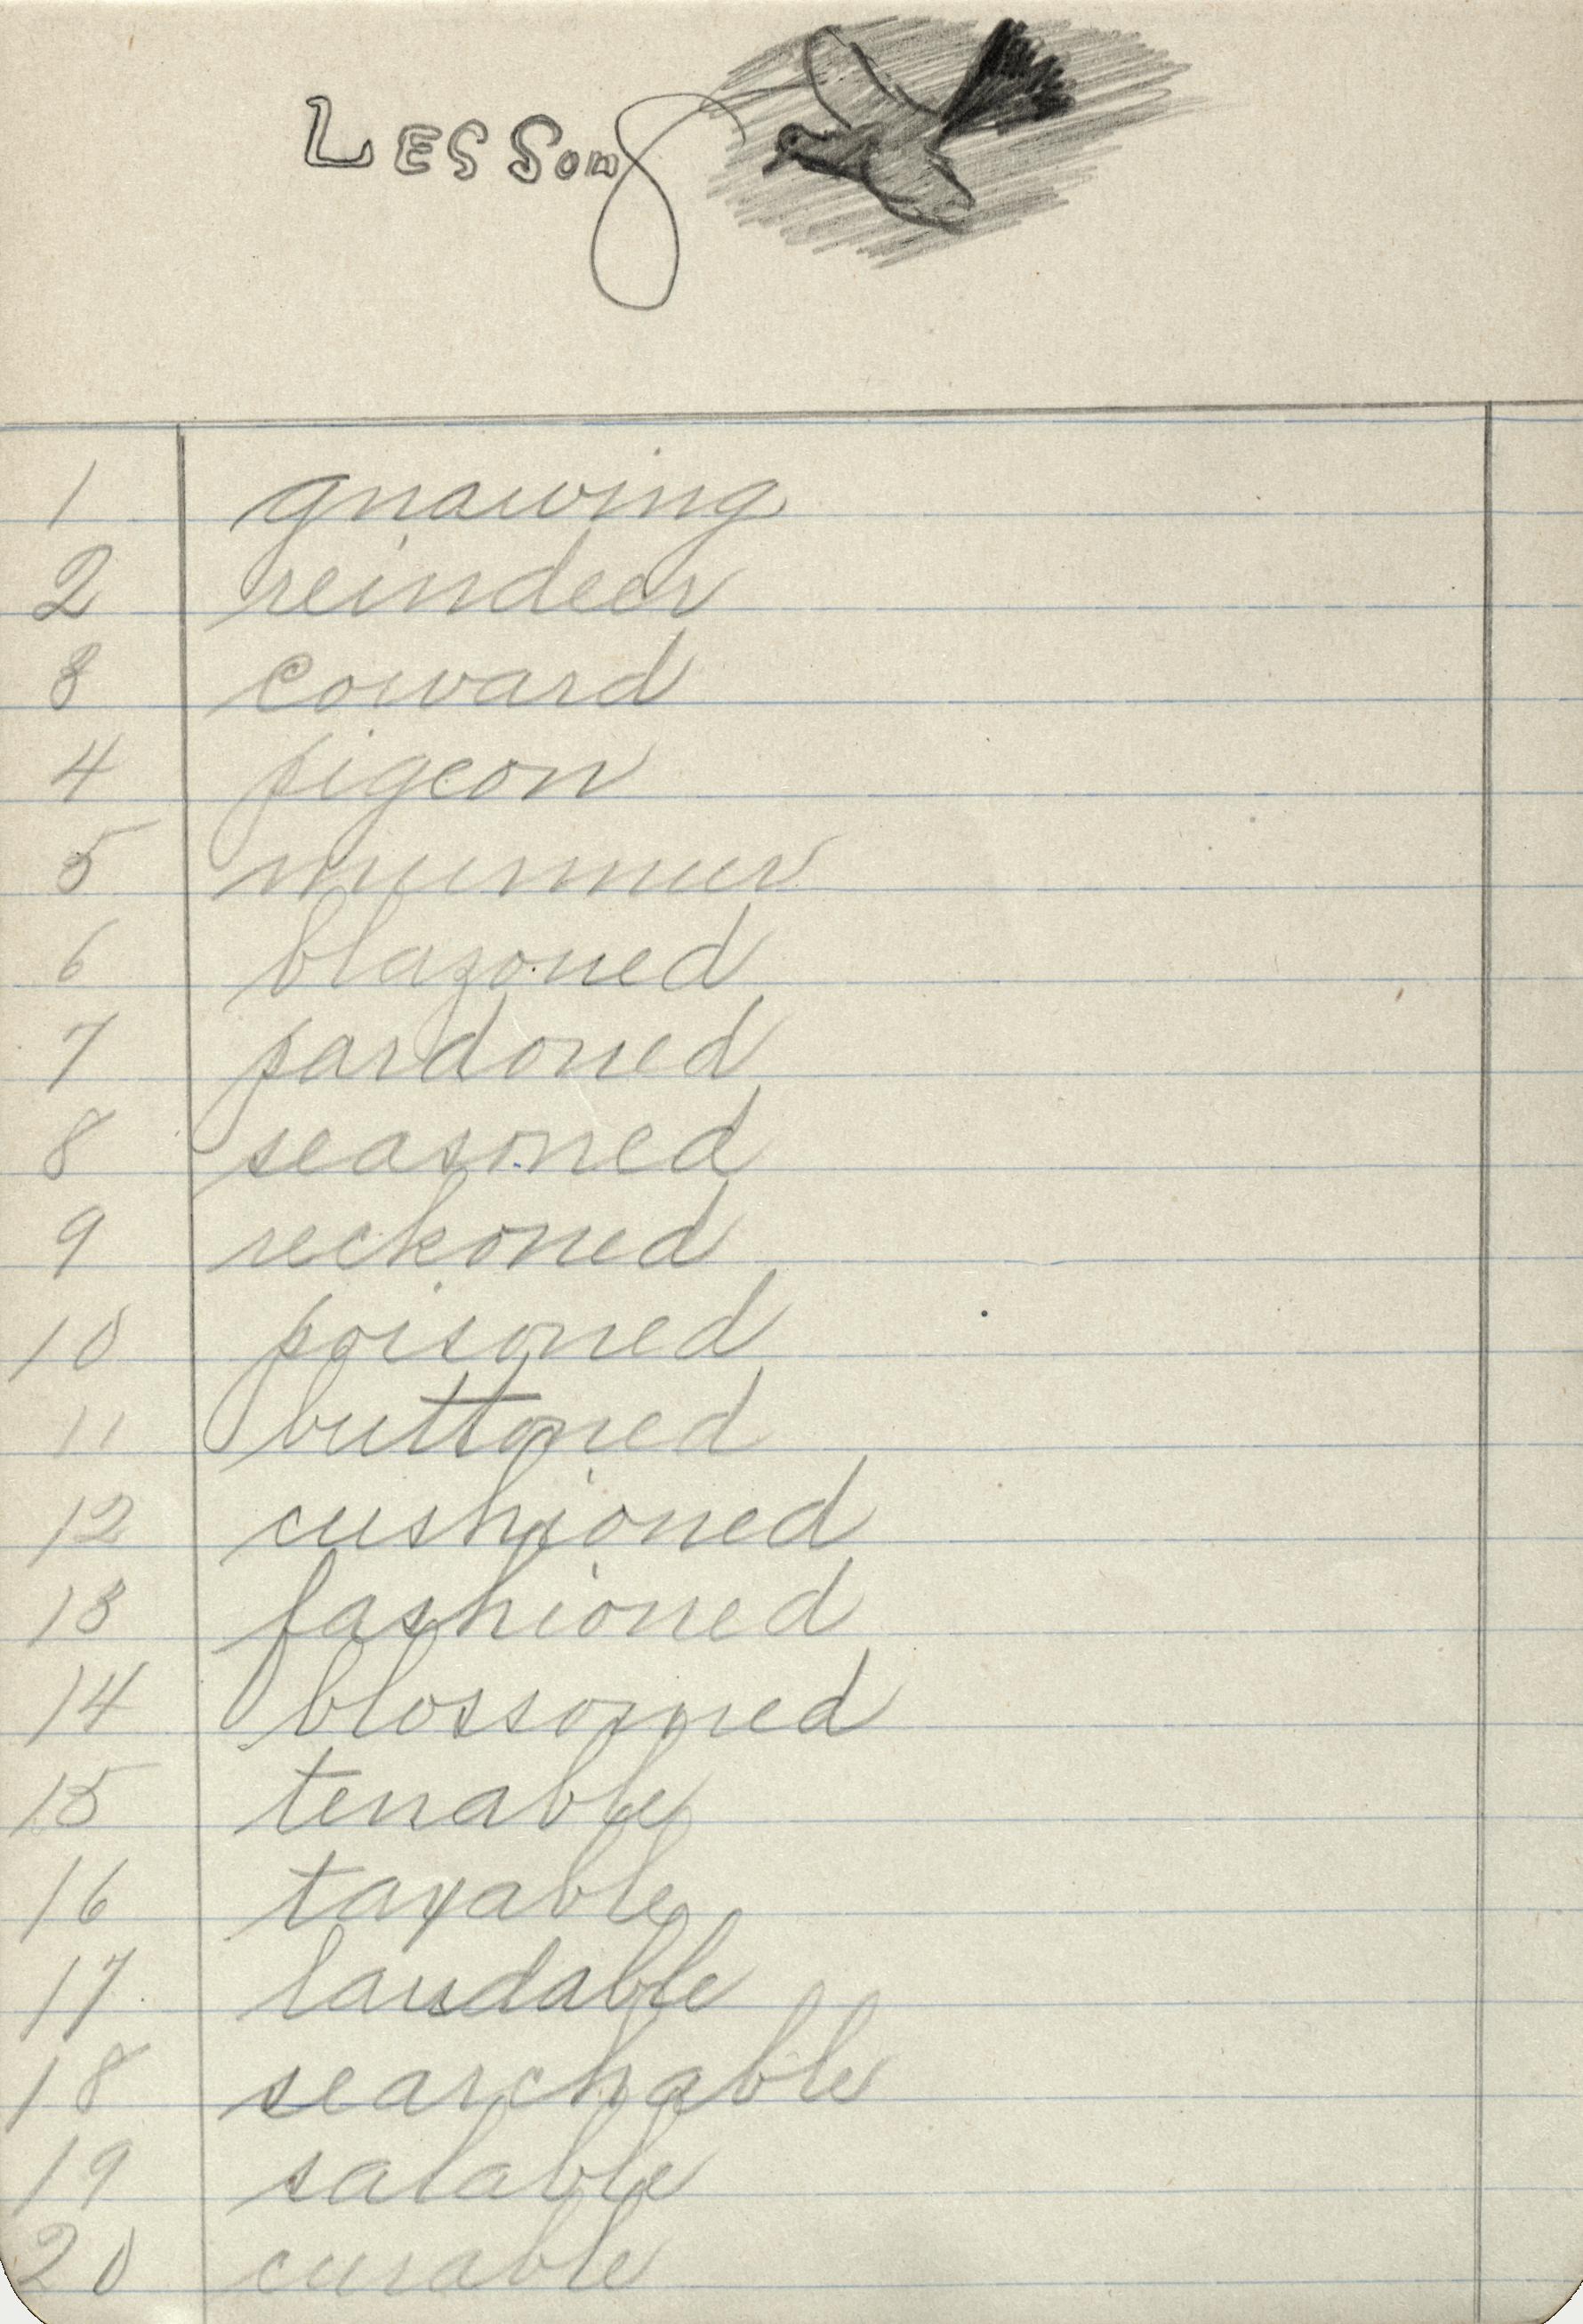 LESSON 8
1 gnawing
2 reindeer
3 coward
4 pigeon
5 murmur
6 blazoned
7 pardoned
8 seasoned
9 reckoned
10 poisoned
11 buttoned
12 cushioned
13 fashioned
14 blossomed
15 tenable
16 taxable
17 laudable
18 searchable
19 salable
20 curable